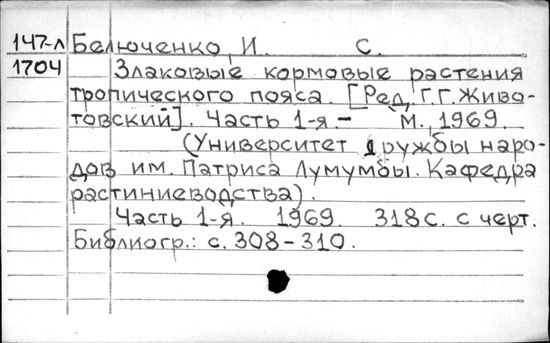 147-л Белюченко, И. С.
1704 Злаковые кормовые растения
тропического пояса. [Ред. Г.Г. Живо-
товский]. Часть 1-я - М., 1969.
(Университет дружбы наро-
дов им. Патриса Лумумбы. Кафедра
растиниеводства).
Часть 1-я. 1969. 318 с. с черт.
Библиогр.: с. 308-310.